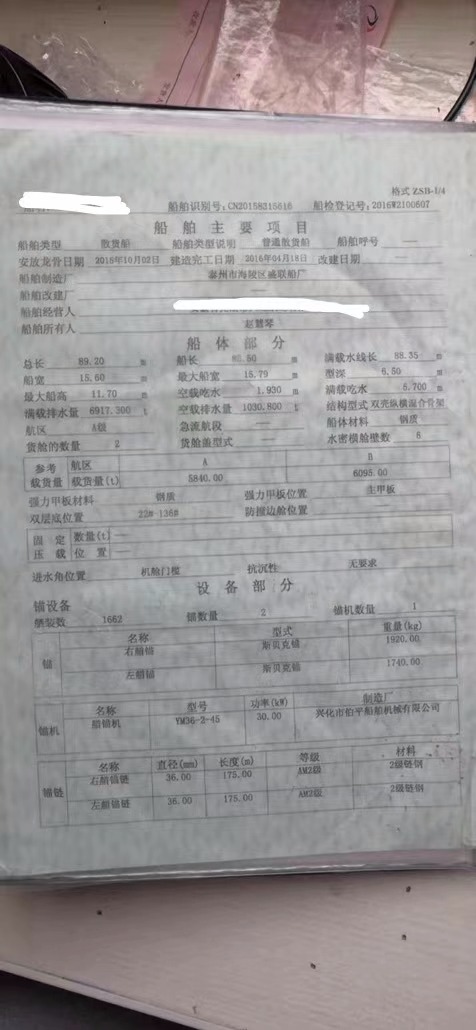 格式 ZSB-1/4
船舶识别号:CN20158315616 船检登记号:2016W2100607
船舶主要项目
船舶类型 散货船 船舶类型说明 普通散货船 船舶呼号 —
安放龙骨日期 2015年10月02日 建造完工日期 2016年04月18日 改建日期 —
船舶制造厂 泰州市海陵区盛联船厂
船舶改建厂 —
船舶经营人
船舶所有人 赵慧琴
船体部分
总长 89.20 m 船长 m 满载水线长 88.35 m
船宽 15.60 m 最大船宽 15.79 m 型深 6.50 m
最大船高 11.70 m 空载吃水 1.930 m 满载吃水 5.700 m
满载排水量 6917.300 t 空载排水量 1030.800 t 结构型式 双壳纵横混合骨架
航区 A级 急流航段 — 船体材料 钢质
货舱的数量 2 货舱盖型式 — 水密横舱壁数 6
参考载货量 航区 A B
载货量(t) 5840.00 6095.00
强力甲板材料 钢质 强力甲板位置 主甲板
双层底位置 22# 136# 防撞边舱位置 —
固定压载 数量(t) —
位置 —
进水角位置 机舱门槛 抗沉性 无要求
设备部分
锚设备
舾装数 1662 锚数量 2 锚机数量 1
锚 名称 型式 重量(kg)
右艏锚 斯贝克锚 1920.00
左艏锚 斯贝克锚 1740.00
锚机 名称 型号 功率(kW) 制造厂
艏锚机 YM36-2-45 30.00 兴化市伯平船舶机械有限公司
锚链 名称 直径(mm) 长度(m) 等级 材料
右艏锚链 36.00 175.00 AM2级 2级链钢
左艏锚链 36.00 175.00 AM2级 2级链钢